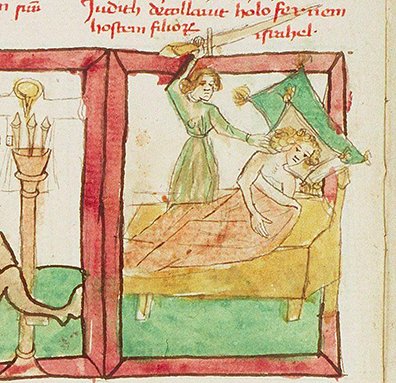 n suu
Judith decollauit holofernem
hostem filiorꝝ israhel.